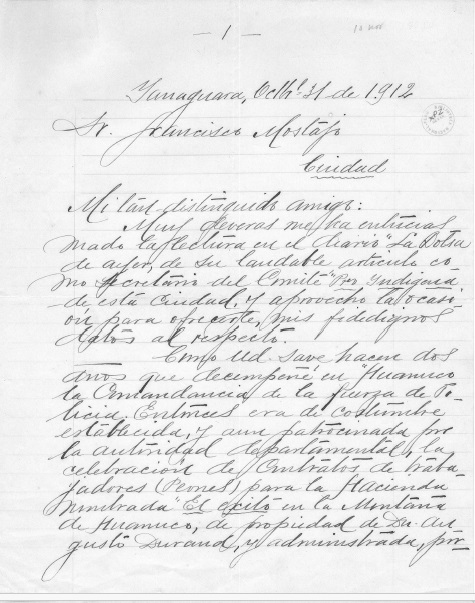 — 1 —
Yanaguara, Octb. 31 de 1,912
Sr. Francisco Mostajo
Ciudad
Mi tan distinguido amigo:
Muy deveras me ha entucias
mado la lectura en el diario La Bolsa
de ayer, de su laudable articulo co
mo Secretario del Comité "Pro Indigena
de esta Ciudad, y aprovecho la ocasi
ón para ofrecerle, mis fidedignos
datos al respecto.
Como Ud. save hacen dos
años que decempeñé en "Huanuco
la Comandancia de la fuerza de Po
licia. Entonces era de costumbre
establecida, y aun patrocinada por
la autoridad departamental, la
celebración de Contratos de traba
jadores (Peones) para la Hacienda
nimbrada "El exito en la Montaña
de Huanuco, de propiedad de Dn. Au
gusto Durand, y administrada, por